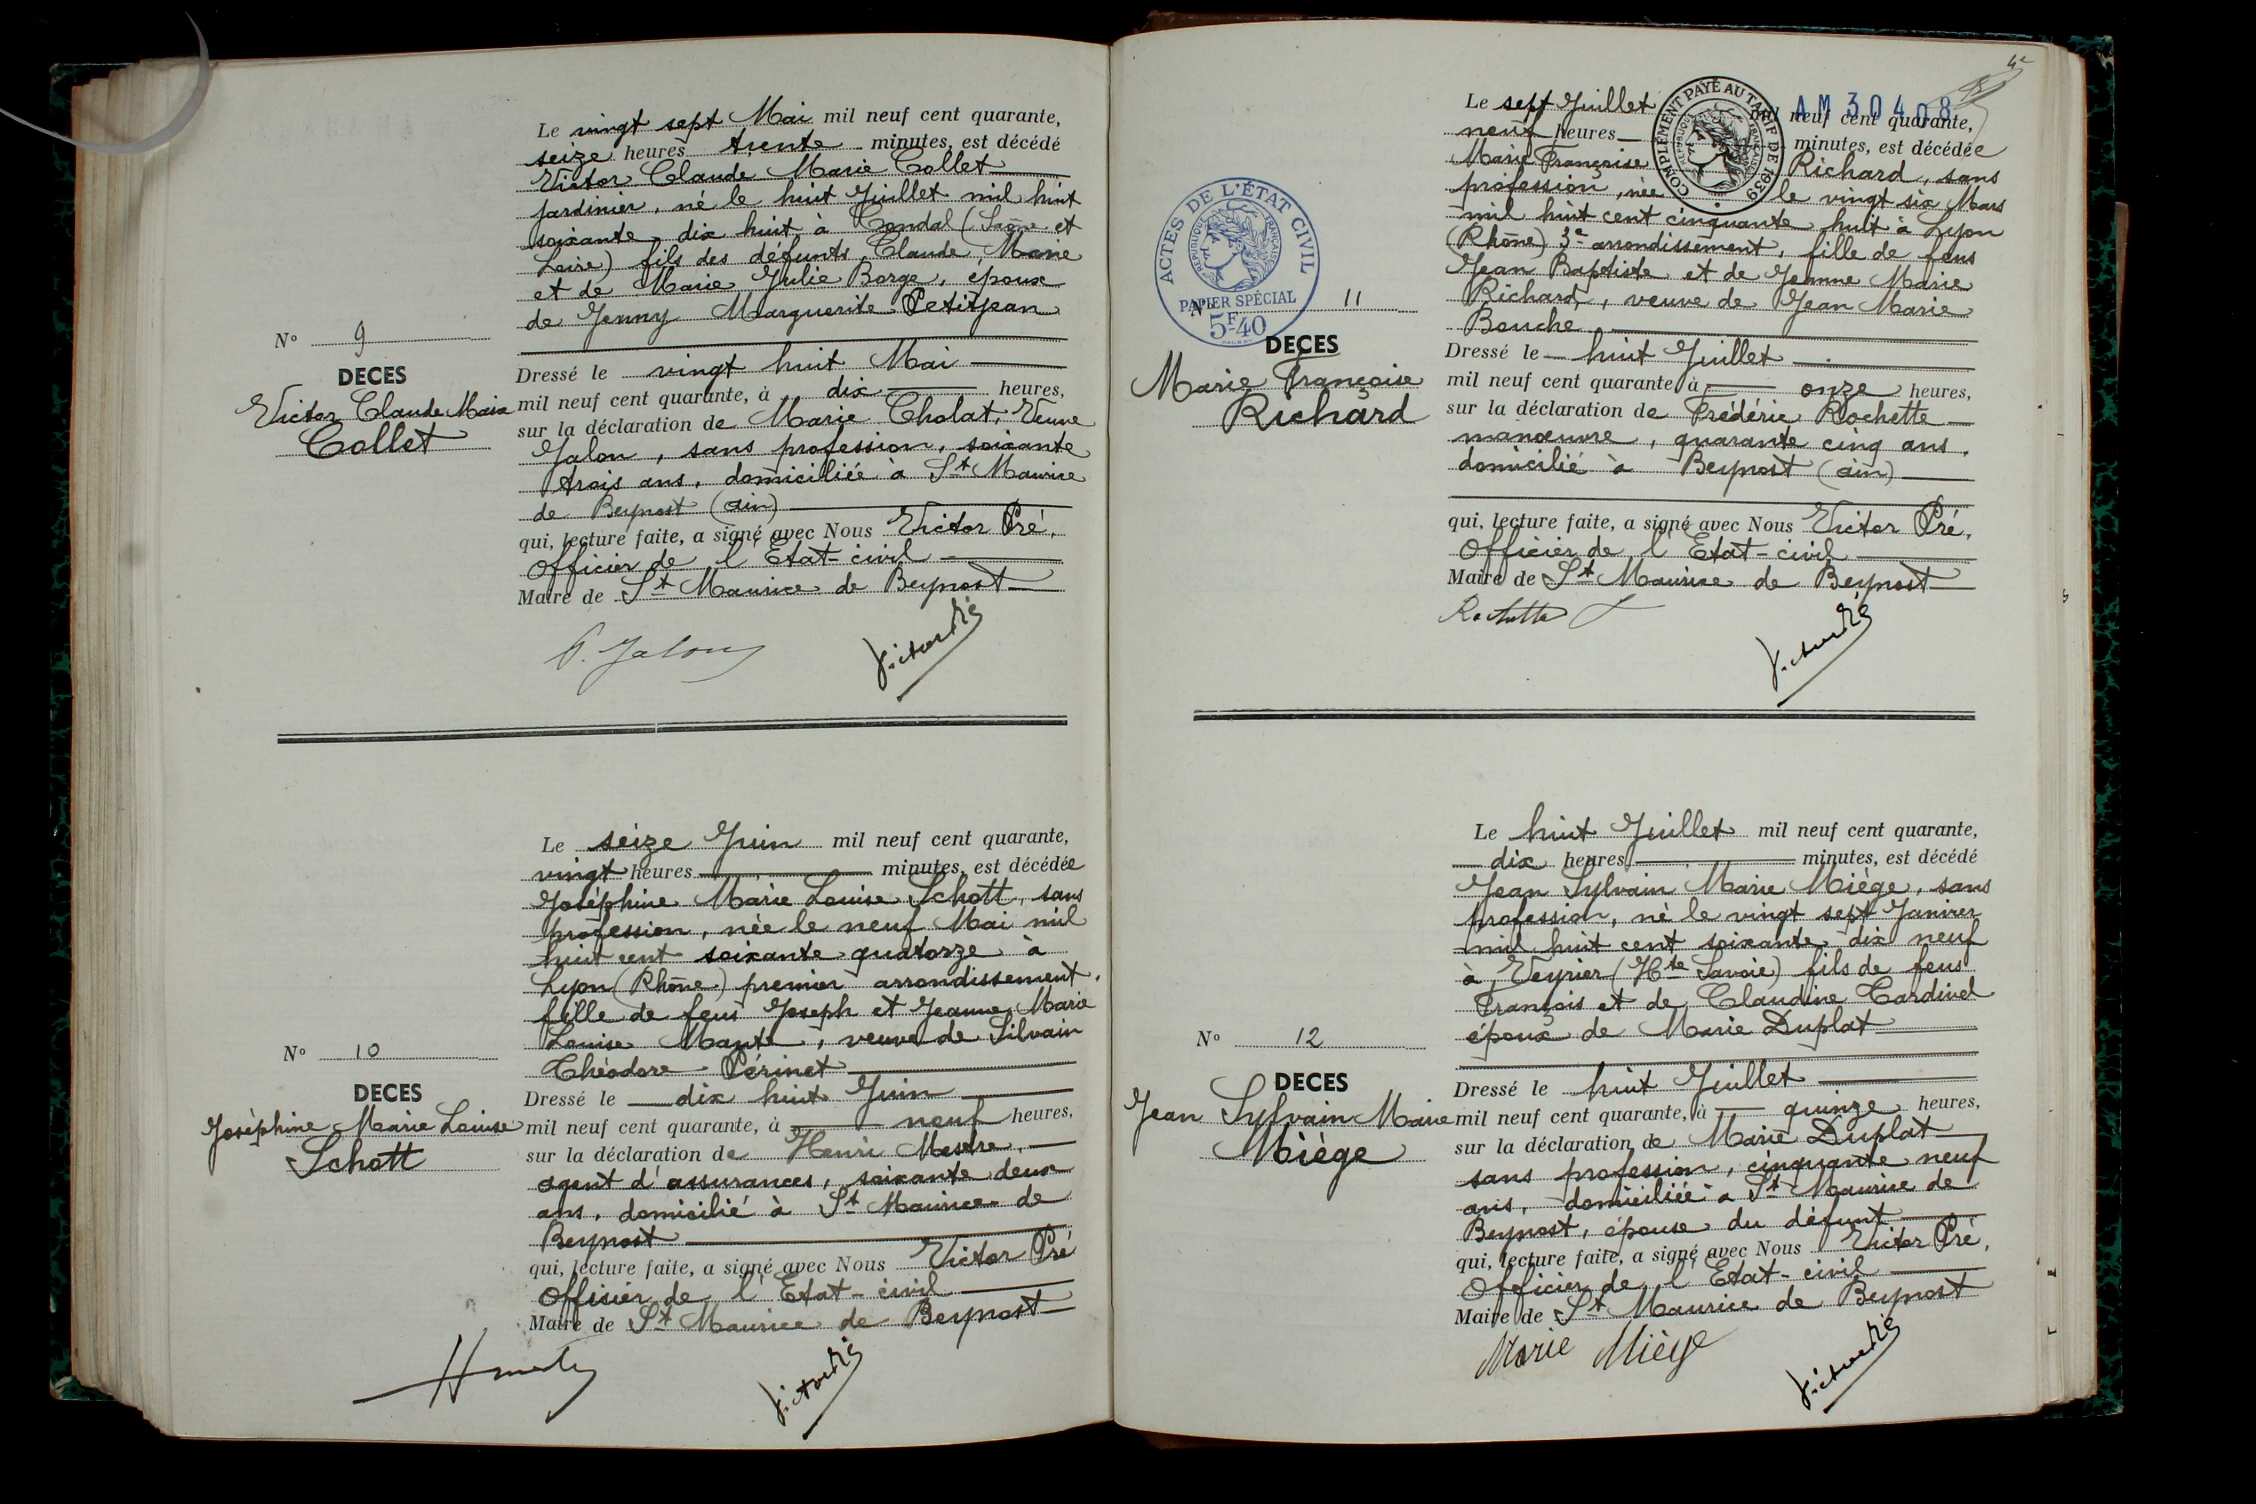 Le vingt sept Mai mil neuf cent quarante,
seize heures trente minutes, est décédé
Victor Claude Marie Collet
jardinier, né le huit Juillet mil huit
soixante dix huit à Condal (Saône et
Loire) fils des défunts Claude Marie
et de Marie Julie Borge, époux
de Jenny Marguerite Petitjean
N° 9
DECES
Victor Claude Marie
Collet
Dressé le vingt huit Mai
mil neuf cent quarante, à dix heures,
sur la déclaration de Marie Cholat, Veuve
Jalon, sans profession, soixante
trois ans, domiciliée à St Maurice
de Beynost (ain)
qui, lecture faite, a signé avec Nous Victor Pré,
Officier de l'Etat-civil
Maire de St Maurice de Beynost
Jalon
Victor Pré
Le seize Juin mil neuf cent quarante,
vingt heures minutes, est décédée
Joséphine Marie Louise Schott, sans
profession, née le neuf Mai mil
huit cent soixante quatorze à
Lyon (Rhône) premier arrondissement,
fille de feus Joseph et Jeanne Marie
Louise Mante, veuve de Silvain
Théodore Périnet
N° 10
DECES
Joséphine Marie Louise
Schott
Dressé le dix huit Juin
mil neuf cent quarante, à neuf heures,
sur la déclaration de Henri Mestre,
agent d'assurances, soixante deux
ans, domicilié à St Maurice de
Beynost
qui, lecture faite, a signé avec Nous Victor Pré
Officier de l'Etat-civil
Maire de St Maurice de Beynost
Victor Pré
AM 30408
COMPLÉMENT PAYÉ AU TARIF DE 1939
RÉPUBLIQUE FRANÇAISE
Le sept Juillet mil neuf cent quarante,
neuf heures minutes, est décédée
Marie Françoise Richard, sans
profession, née le vingt six Mars
mil huit cent cinquante huit à Lyon
(Rhône) 3e arrondissement, fille de feus
Jean Baptiste et de Jeanne Marie
Richard, veuve de Jean Marie
Bouche
ACTES DE L'ÉTAT CIVIL
RÉPUBLIQUE FRANÇAISE
PAPIER SPÉCIAL
5F40
N° 11
DECES
Marie Françoise
Richard
Dressé le huit Juillet
mil neuf cent quarante, à onze heures,
sur la déclaration de Frédéric Rochette
manœuvre, quarante cinq ans,
domicilié à Beynost (ain)
qui, lecture faite, a signé avec Nous Victor Pré,
Officier de l'Etat-civil
Maire de St Maurice de Beynost
Rochette
Victor Pré
Le huit Juillet mil neuf cent quarante,
dix heures minutes, est décédé
Jean Sylvain Marie Miège, sans
profession, né le vingt sept Janvier
mil huit cent soixante dix neuf
à Veyrier (Hte Savoie) fils de feus
François et de Claudine Cardinel
époux de Marie Duplat
N° 12
DECES
Jean Sylvain Marie
Miège
Dressé le huit Juillet
mil neuf cent quarante, à quinze heures,
sur la déclaration de Marie Duplat
sans profession, cinquante neuf
ans, domiciliée à St Maurice de
Beynost, épouse du défunt
qui, lecture faite, a signé avec Nous Victor Pré,
Officier de l'Etat-civil
Maire de St Maurice de Beynost
Marie Miège
Victor Pré